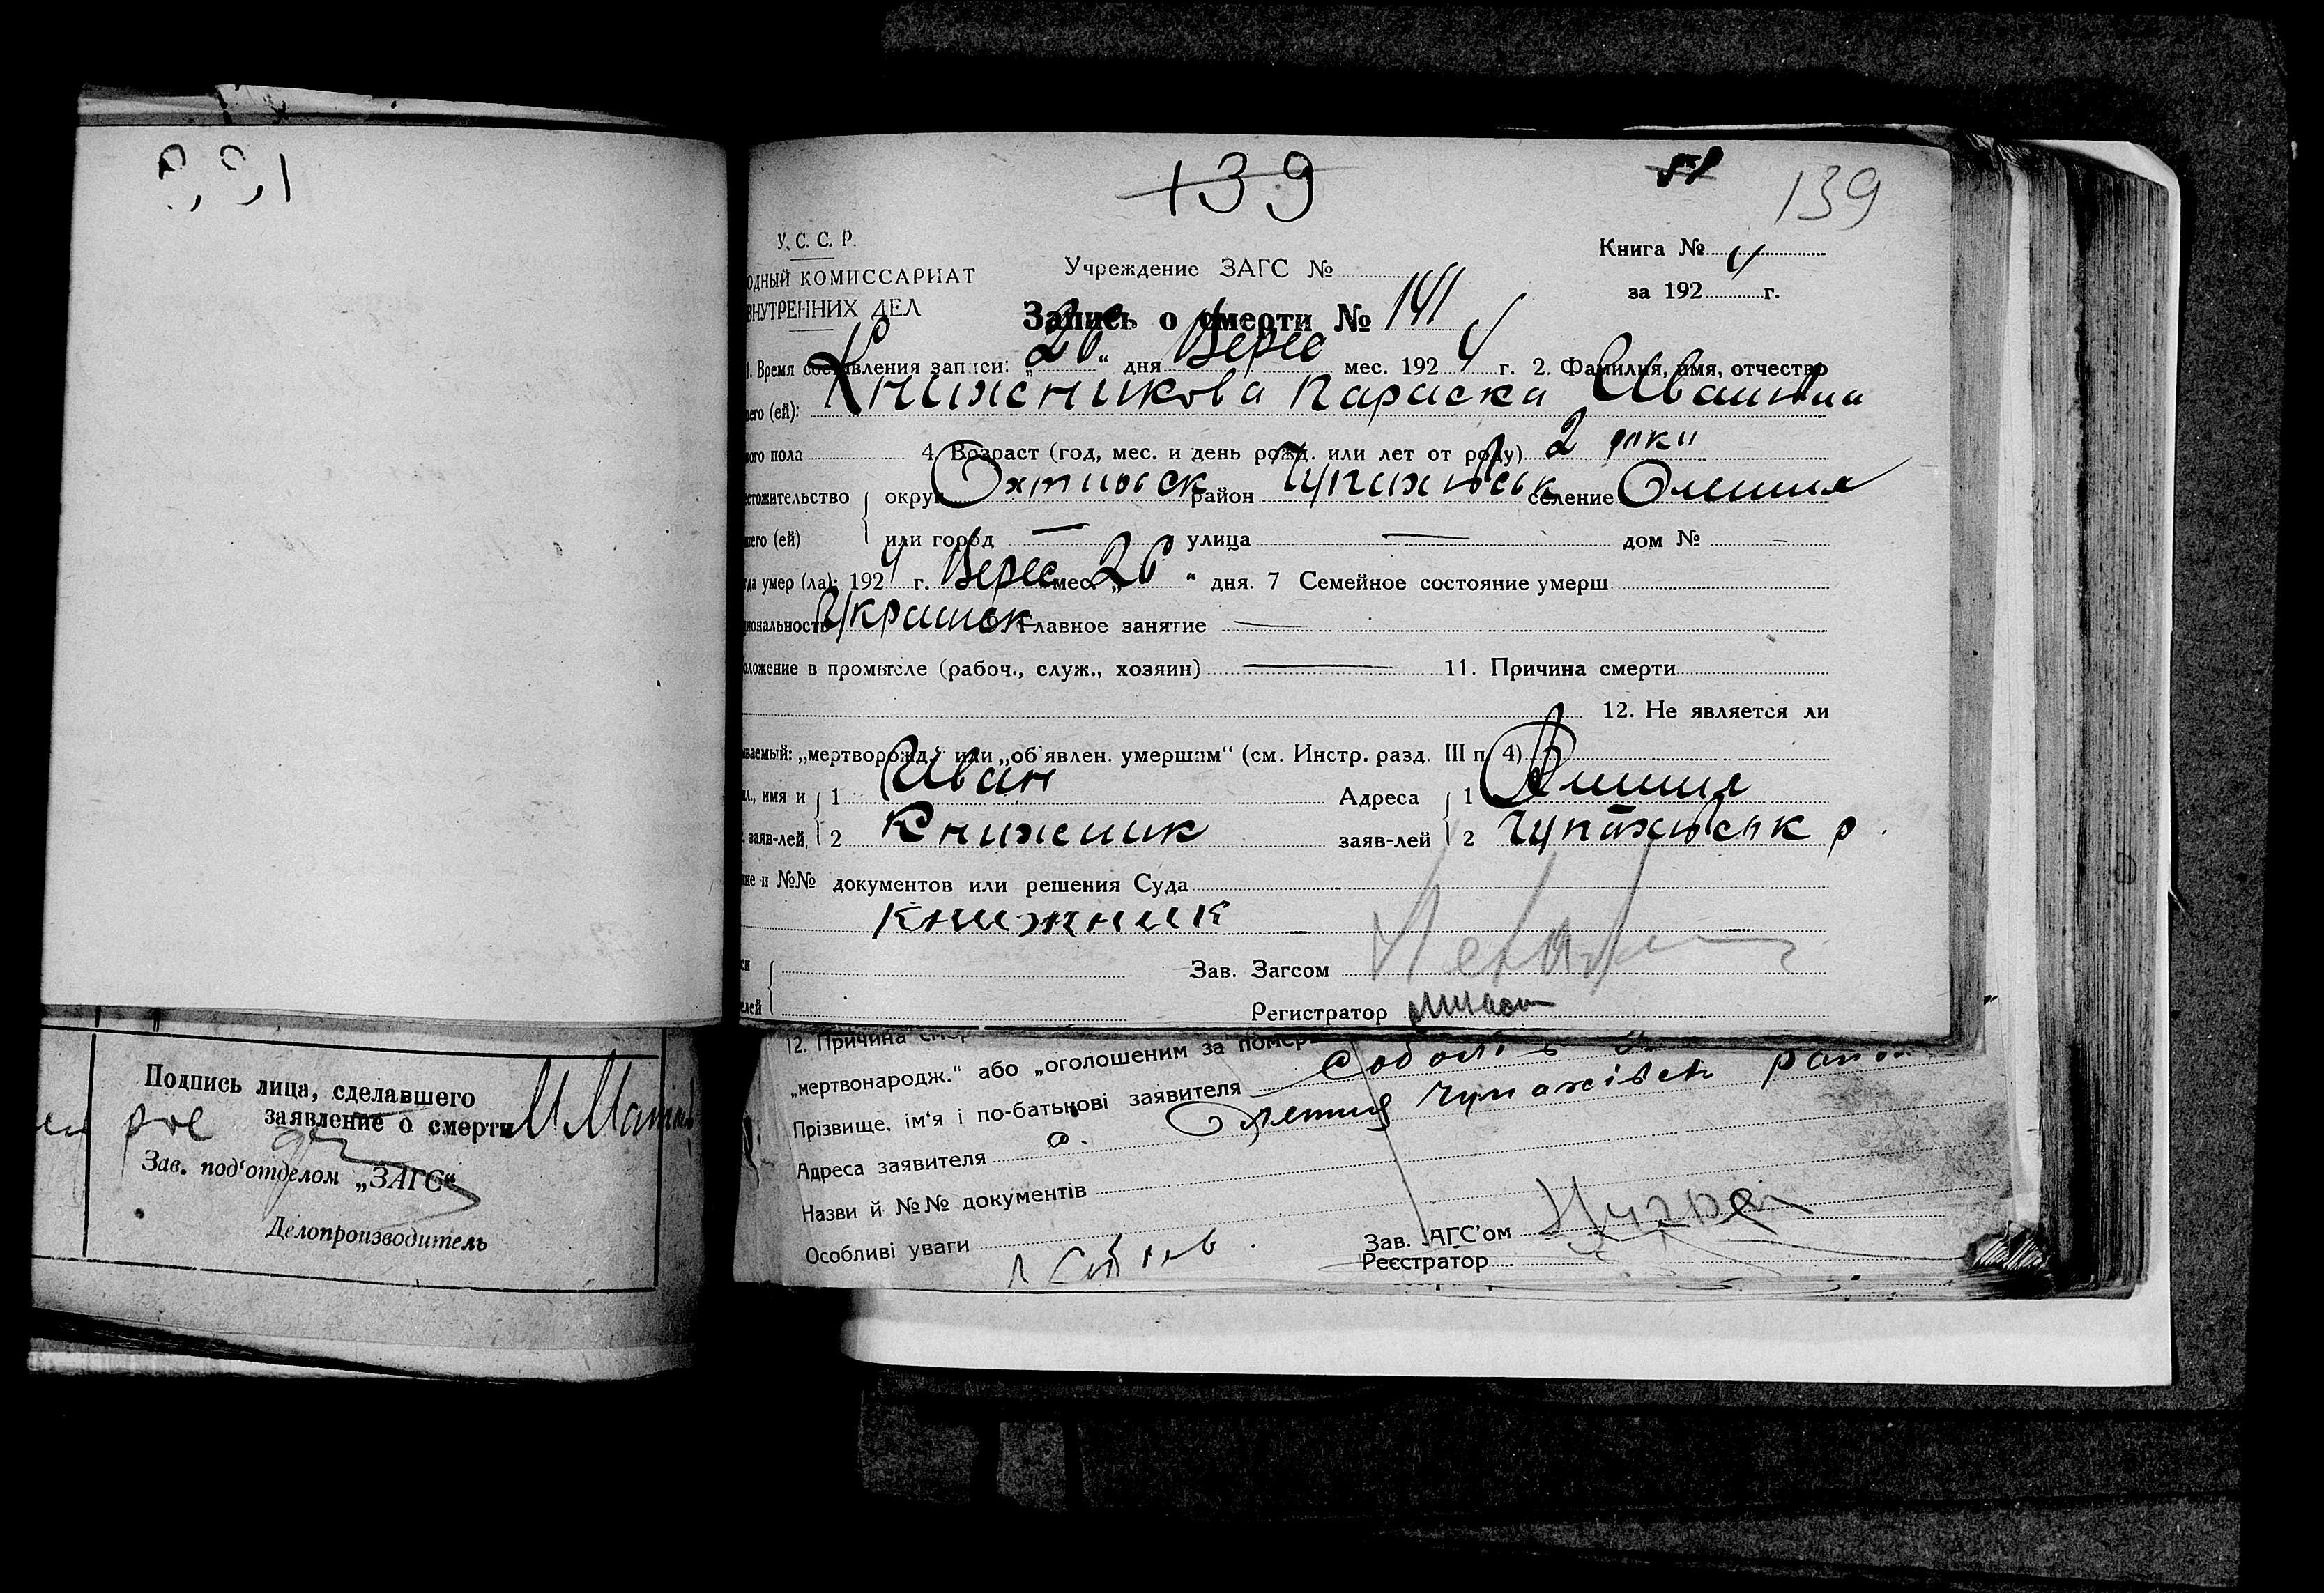 139
139
У. С. С. Р.
ОДНЫЙ КОМИССАРИАТ
ВНУТРЕННИХ ДЕЛ
Учреждение ЗАГС №
Книга № 4
за 192 г.
Запись о смерти № 141
1. Время составления записи: „26“ дня Верес мес. 1924 г. 2. Фамилия, имя, отчество
шего (ей): Книжникова Параска Ивановна
ного пола 4. Возраст (год, мес. и день рожд. или лет от роду) 2 роки
естожительство округ Охтирськ район Чупахівськ селение Олешня
шего (ей) или город — улица — дом № —
гда умер (ла): 1924 г. Верес мес. „26“ дня. 7 Семейное состояние умерш.
иональность Українськ 9. Главное занятие —
оложение в промысле (рабоч., служ., хозяин) — 11. Причина смерти
12. Не является ли
ваемый: „мертворожд.“ или „об'явлен. умершим“ (см. Инстр. разд. III п. 4)
ил., имя и 1 Иван Адреса 1 Олешня
. заяв-лей, 2 Книжник заяв-лей 2 Чупахівськ р.
ние и №№ документов или решения Суда
Книжник
Зав. Загсом
лей Регистратор
12. Причина смер
„мертвонародж.“ або „оголошеним за помер
Прізвище, ім'я і по-батькові заявителя
Адреса заявителя с. Олешня Чупахівськ район
Назви й №№ документів
Особливі уваги
Зав. ЗАГС'ом
Реєстратор
Подпись лица, сделавшего
заявление о смерти
Зав. под'отделом „ЗАГС“
Делопроизводитель